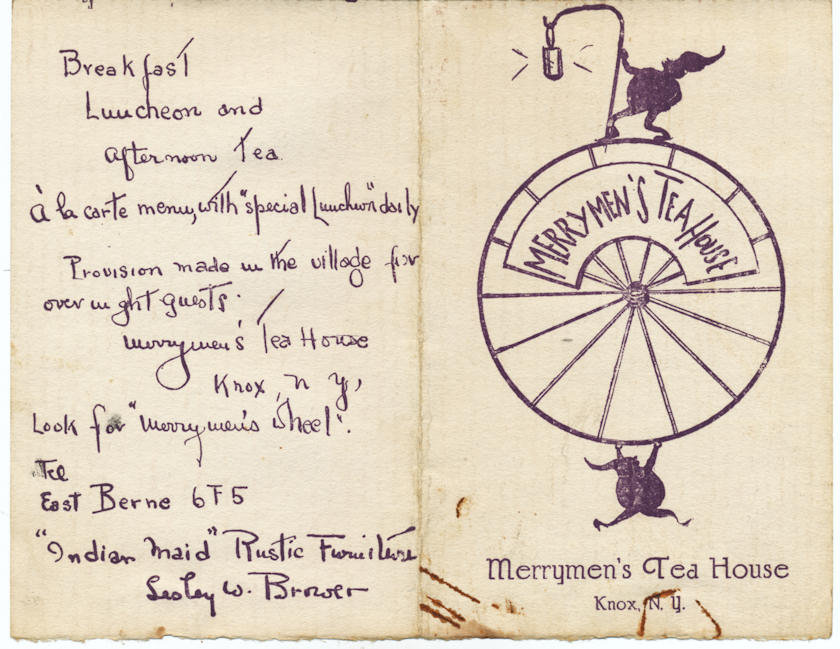 Breakfast
Luncheon and
Afternoon Tea
À la carte menu, with "special Luncheon" daily
Provision made in the village for
over night guests.
Merrymen's Tea House
Knox, N Y,
Look for "Merrymen's wheel".
Tel
East Berne 6F5
"Indian Maid" Rustic Furniture
Lesley W. Brower
MERRYMEN'S TEA HOUSE
Merrymen's Tea House
Knox, N. Y.